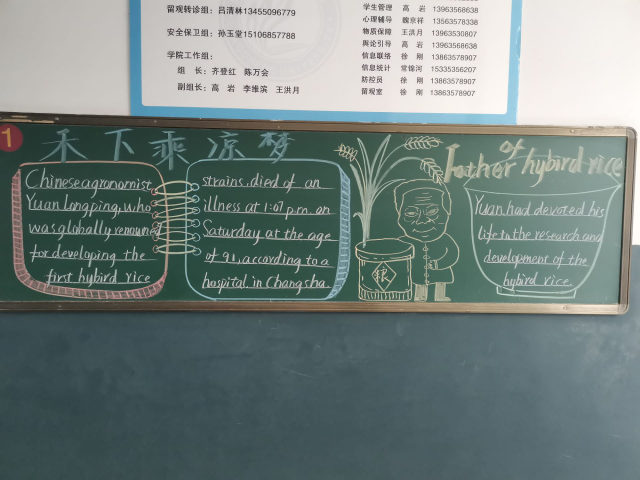 留观转诊组：吕清林13455096779
安全保卫组：孙玉堂15106857788
学院工作组：
组 长：齐登红 陈万会
副组长：高 岩 李维滨 王洪月
学生管理 高 岩 13963568638
心理辅导 魏京祥 13563578338
物质保障 王洪月 13963530807
舆论引导 高 岩 13963568638
信息联络 徐 刚 13863578907
信息统计 常锦河 15335356207
防控员 徐 刚 13863578907
留观室 徐 刚 13863578907
1
禾下乘凉梦
Chinese agronomist
Yuan Longping, who
was globally
for developing the
first hybird rice
strains, died of an
illness at 1:07 p.m. on
Saturday at the age
of 91, according to a
haspital in Changsha.
粮
Father of hybird rice
Yuan had devoted his
life to the research and
development of the
hybird rice.